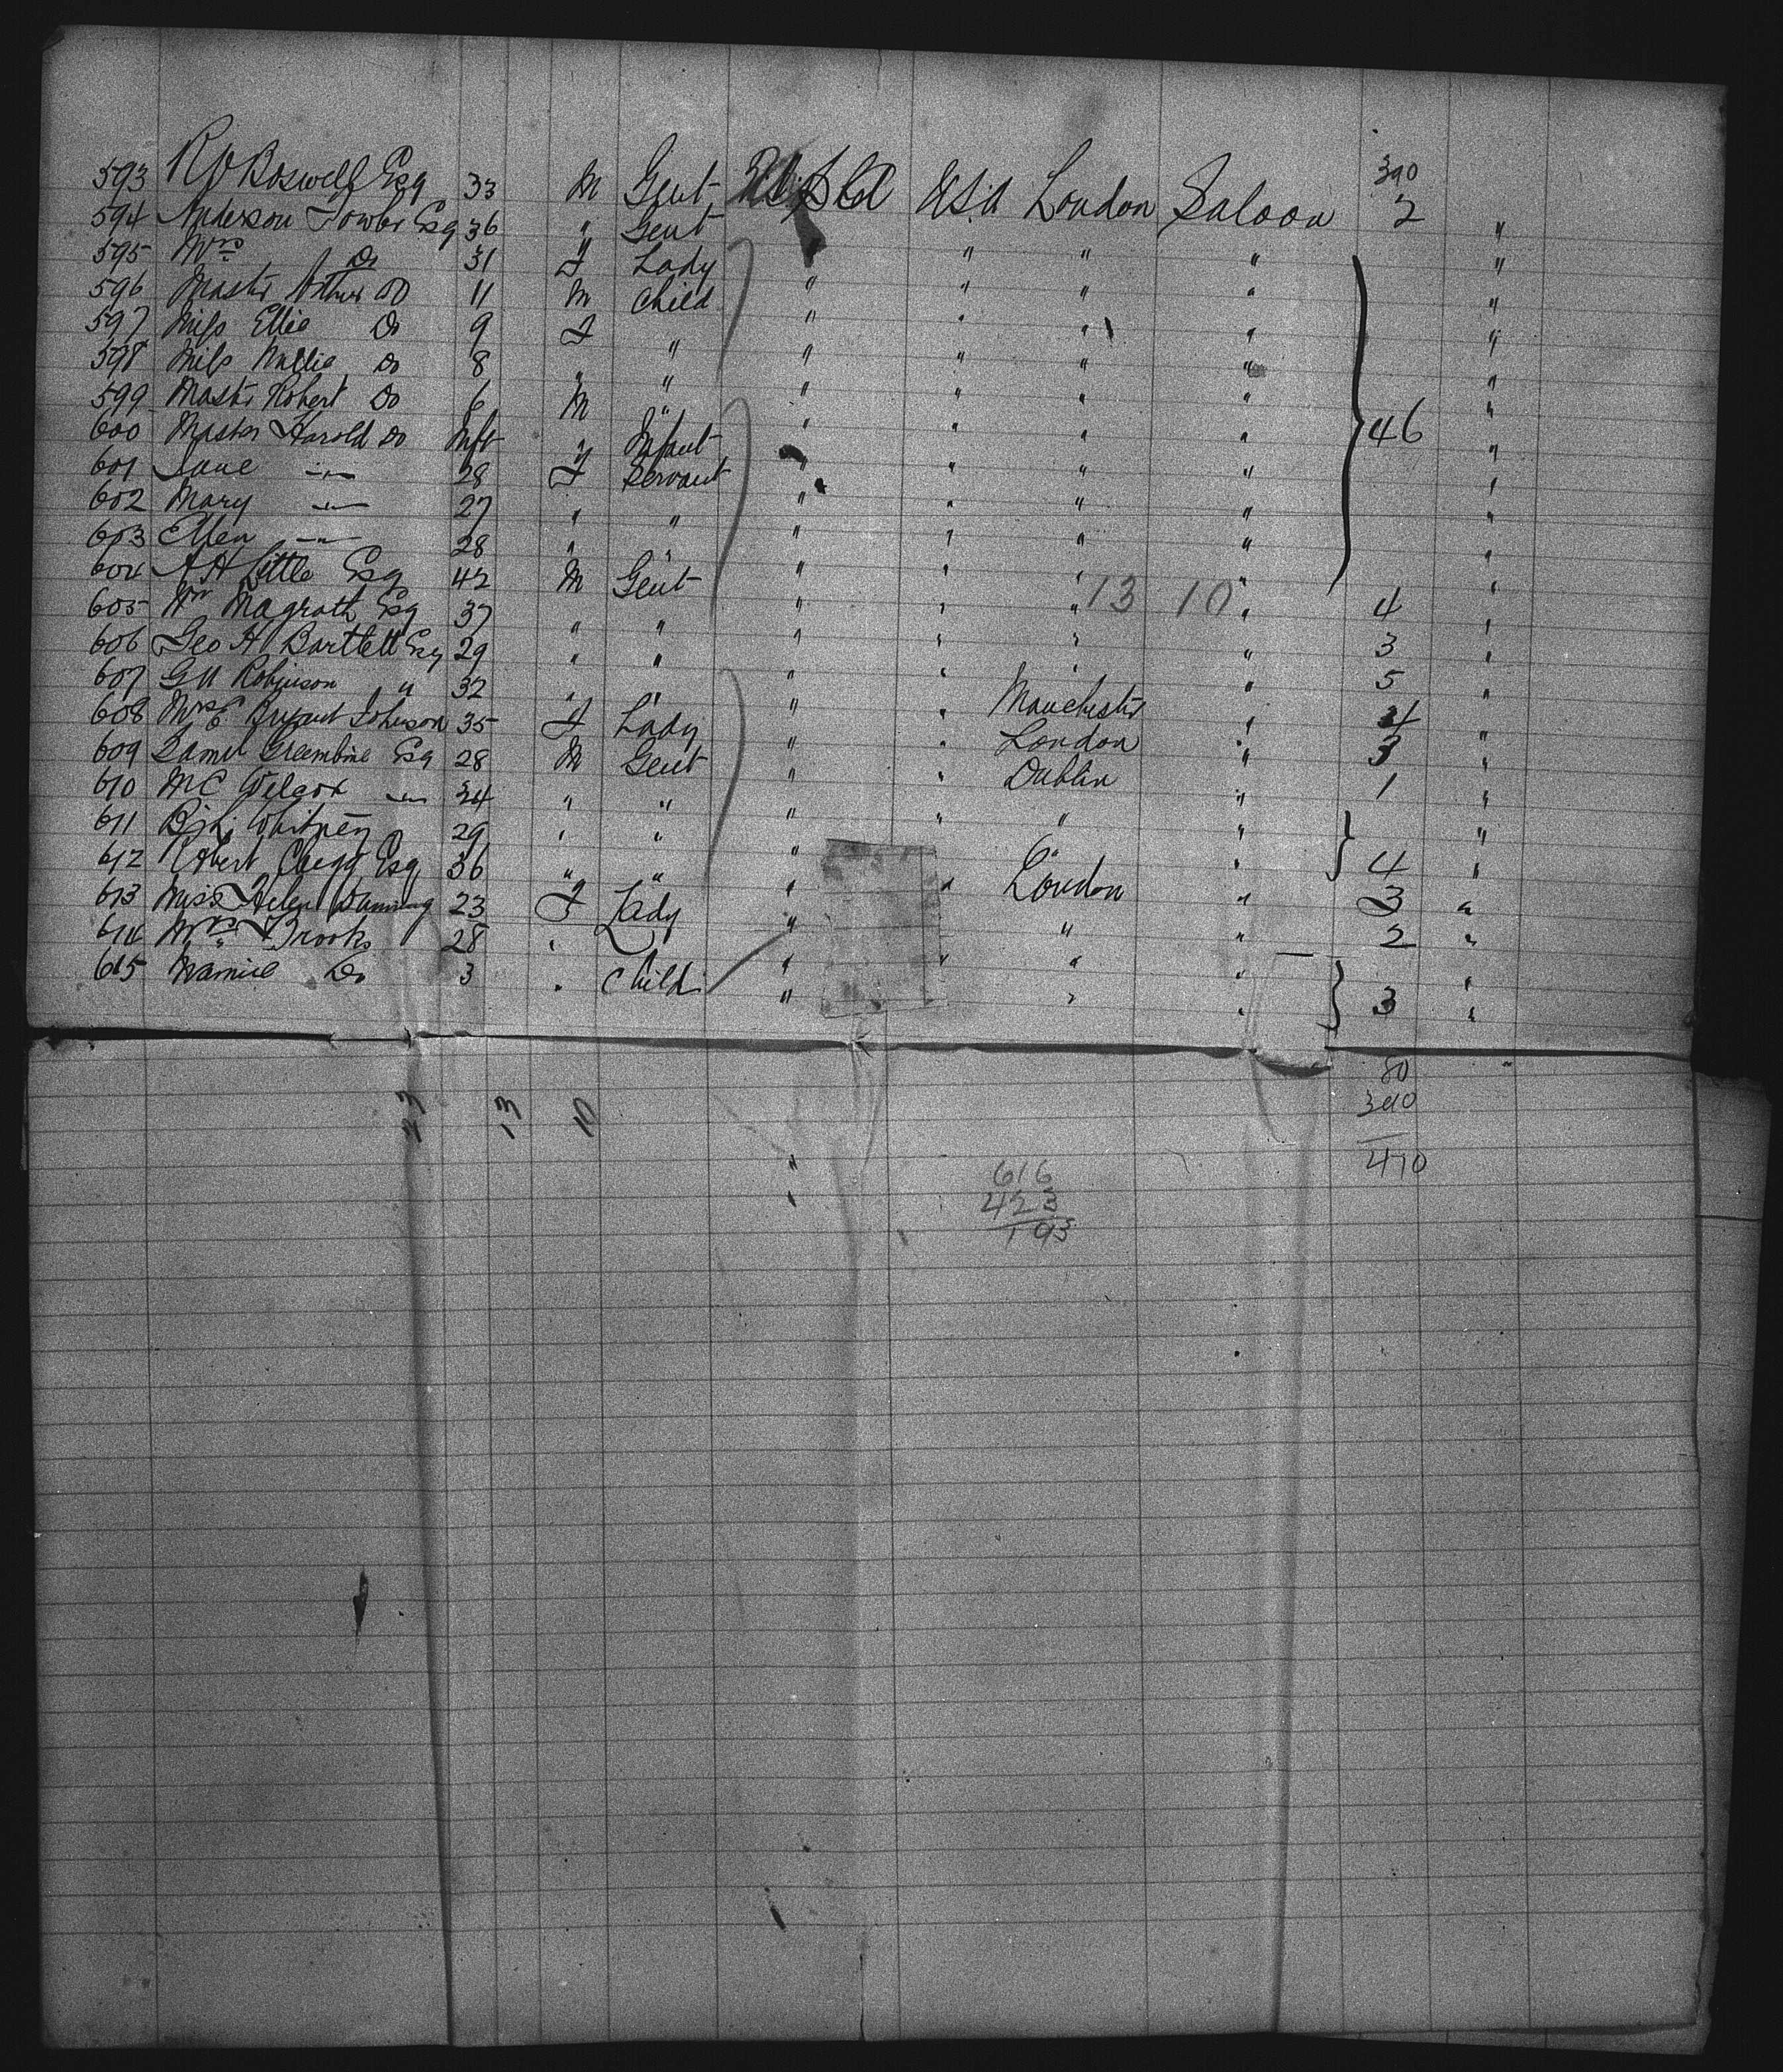 390
593 R V Boswell Esq 33 M Gent U.S.A London Saloon 2 "
594 Anderson Fowler Esq 36 " Gent " " " " "
595 Mrs Do 31 F Lady " " " " "
596 Mastr Arthur Do 11 M Child " " " " "
597 Miss Ellie Do 9 F " " " " " "
598 Miss Do 8 " " " " " " "
599 Mastr Robert Do 6 M " " " " " 46 "
600 Master Harold Do Inft " Infant " " " " "
601 Jane —"— 28 F Servant " " " " "
602 Mary —"— 27 " " " " " " "
603 Ellen —"— 28 " " " " " " "
604 A H Little Esq 42 M Gent " " " 13 10 " 4 "
605 Wm Magrath Esq 37 " " " " " " 3 "
606 Geo H Bartlett Esq 29 " " " " " " 5 "
607 G W Robinson " 32 " " " " Manchestr " 4 "
608 Mrs E Bryant Johnson 35 F Lady " " London " 3 "
609 Esq 28 M Gent " " Dublin " 1 "
610 M C Wilcox —"— 24 " " " " " " "
611 Whitney 29 " " " " " 4 "
612 Robert Clegg Esq 36 " " " " London " 3 "
613 Miss Helen 23 F Lady " " " 2 "
614 Mrs Brooks 28 " " " " " "
615 Mamie Do 3 " Child " " " 3 "
80
390
470
23 13 10
616
423
193